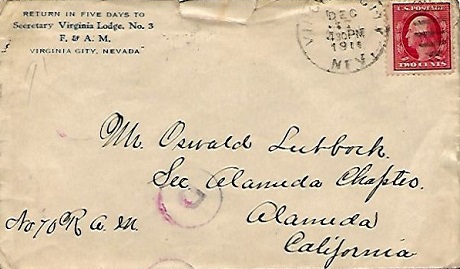 RETURN IN FIVE DAYS TO
Secretary Virginia Lodge, No. 3
F. & A. M.
VIRGINIA CITY, NEVADA
DEC
430 PM
191
NEV.
TWO CENTS
Mr. Oswald Lubbock.
Sec Alameda Chapter.
No. 70 R. A. M.
Alameda
California